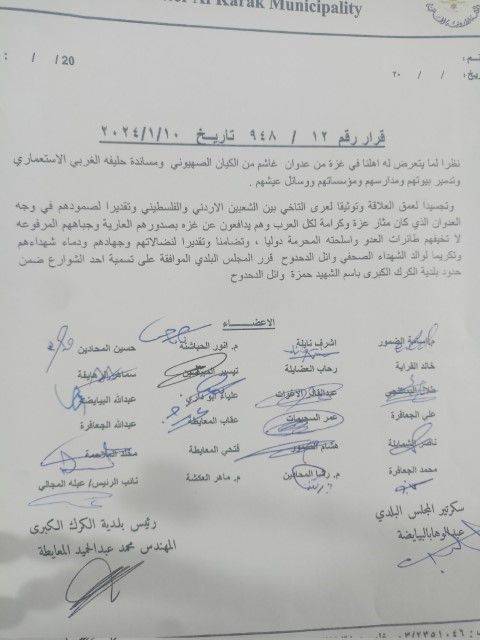 Al Karak Municipality
: / / 20
٢٠ / /
قرار رقم ١٢ / ٩٤٨ تاريخ ٢٠٢٤/١/١٠
نظرا لما يتعرض له اهلنا في غزة من عدوان غاشم من الكيان الصهيوني ومساندة حليفه الغربي الاستعماري
وتدمير بيوتهم ومدارسهم ومؤسساتهم ووسائل عيشهم .
وتجسيدا لعمق العلاقة وتوثيقا لعرى التاخي بين الشعبين الاردني والفلسطيني وتقديرا لصمودهم في وجه
العدوان الذي كان مثار عزة وكرامة لكل العرب وهم يدافعون عن غزه بصدورهم العارية وجباههم المرفوعه
لا تخيفهم طائرات العدو واسلحته المحرمة دوليا ، وتضامنا وتقديرا لنضالاتهم وجهادهم ودماء شهداءهم
وتكريما لوالد الشهداء الصحفي وائل الدحدوح قرر المجلس البلدي الموافقة على تسمية احد الشوارع ضمن
حدود بلدية الكرك الكبرى باسم الشهيد حمزة وائل الدحدوح
الاعضـــــاء
الضمور اشرف نايلة م. انور الحباشنة حسين المحادين
خالد القراية رحاب العضايلة تيسير
عبدالقادر علياء عبدالله البيايضة
علي الجعافرة عمر السحيمات عقاب المعايطة عبدالله الجعافرة
ناصر الشمايلة هشام الضمور فتحي المعايطة
محمد الجعافرة المحادين م. ماهر العكشة نائب الرئيس/ عبله المجالي
سكرتير المجلس البلدي
عبدالوهاب البيايضة
رئيس بلدية الكرك الكبرى
المهندس محمد عبدالحميد المعايطة